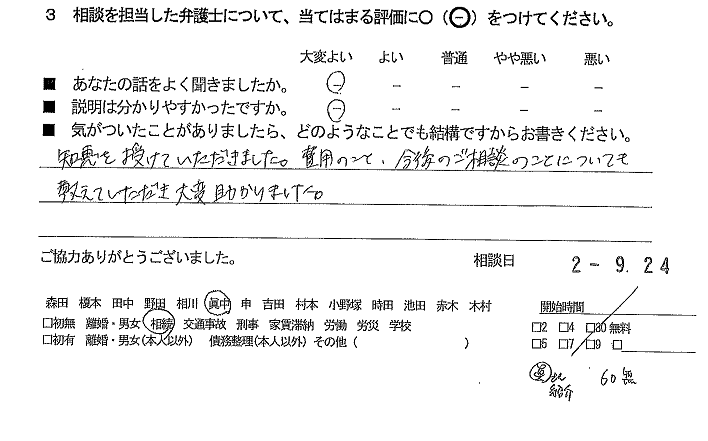 3 相談を担当した弁護士について、当てはまる評価に○(⊖)をつけてください。
大変よい よい 普通 やや悪い 悪い
■ あなたの話をよく聞きましたか。 − − − − −
■ 説明は分かりやすかったですか。 − − − − −
■ 気がついたことがありましたら、どのようなことでも結構ですからお書きください。
知恵を授けていただきました。費用のこと、今後のご相談のことについても
教えていただき大変助かりました。
ご協力ありがとうございました。 相談日 2-9.24
森田 榎本 田中 野田 相川 眞中 申 吉田 村本 小野塚 時田 池田 赤木 木村 開始時間
□初無 離婚・男女 相続 交通事故 刑事 家賃滞納 労働 労災 学校 □2 □4 □30 無料
□初有 離婚・男女(本人以外) 債務整理(本人以外) その他( ) □5 □7 □9 □
紹介 60無